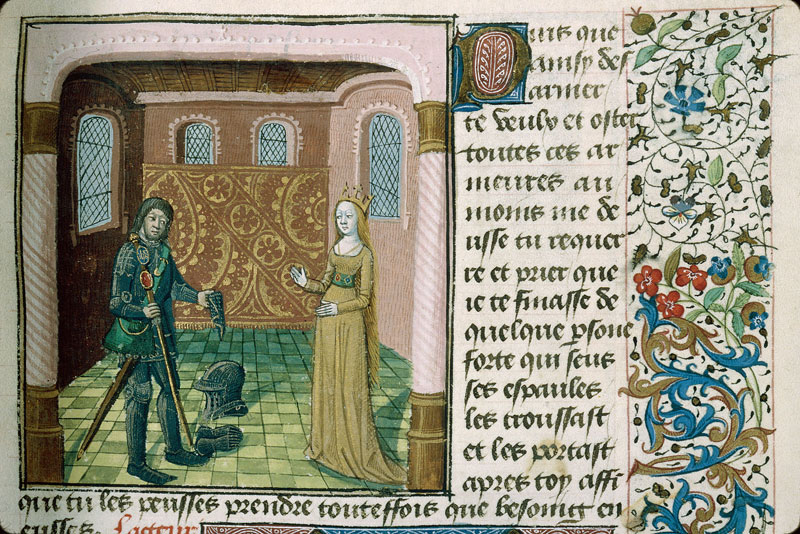 Puis que
ainsy des
armer
te veulx et oster
toutes ces ar
meures au
moins me de
usse tu reque
rre et prier que
ie te finasse de
quelque psone
forte qui seus
ses espaules
les troussast
et les portast
apres toy affi
que tu les peusses prendre touteffois que besoing en
eusses. Lacteur